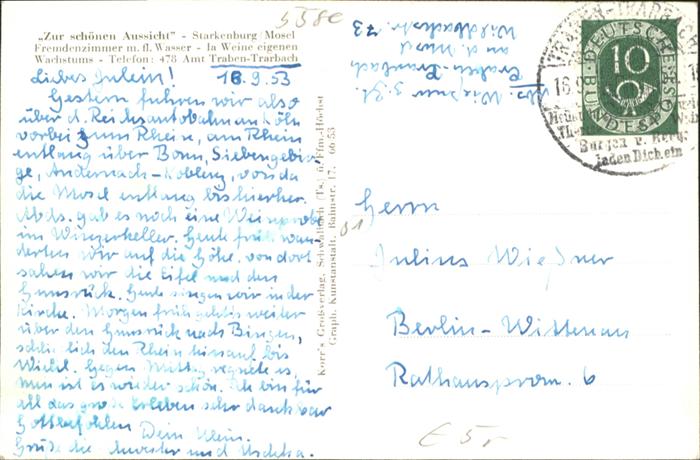 5580
„Zur schönen Aussicht" - Starkenburg/Mosel
Fremdenzimmer m. fl. Wasser - la Weine eigenen
Wachstums - Telefon: 478 Amt Traben-Trarbach
Liebes Julein! 16.9.53
Gestern fuhren wir also
über d. Reichsautobahn an Köln
vorbei zum Rheine, am Rhein
entlang über Bonn, Siebengebir
ge, Andernach-Koblenz, von da
die Mosel entlang bis hierher.
Abds. gab es noch eine Weinprobe
im Winzerkeller. Heute früh wan
derten wir auf die Höhe, von dort
sahen wir die Eifel und den
Hunsrück. Heute singen wir in der
Kirche. Morgen früh gehts weiter
über den Hunsrück nach Bingen,
schließlich den Rhein hinauf bis
Gegen Mittag regnete es,
nun ist es wieder schön. Ich bin für
all das große Erleben sehr dankbar
Gottbefohlen Dein Klein.
Grüße die und
Korr's Großverlag, Schwalbach (Ts.) ü. Ffm.-Höchst
Graph. Kunstanstalt, Bahnstr. 17. 66/53
Wießner z. Zt.
Traben-Trarbach
an d. Mosel
Wildbadstr. 73
TRABEN-TRARBACH
16.9
Burgen u. Berg
laden Dich ein
DEUTSCHE BUNDESPOST
10
01
Herrn
Julius Wießner
Berlin-Wittenau
Rathausprom. 6
€ 5,-